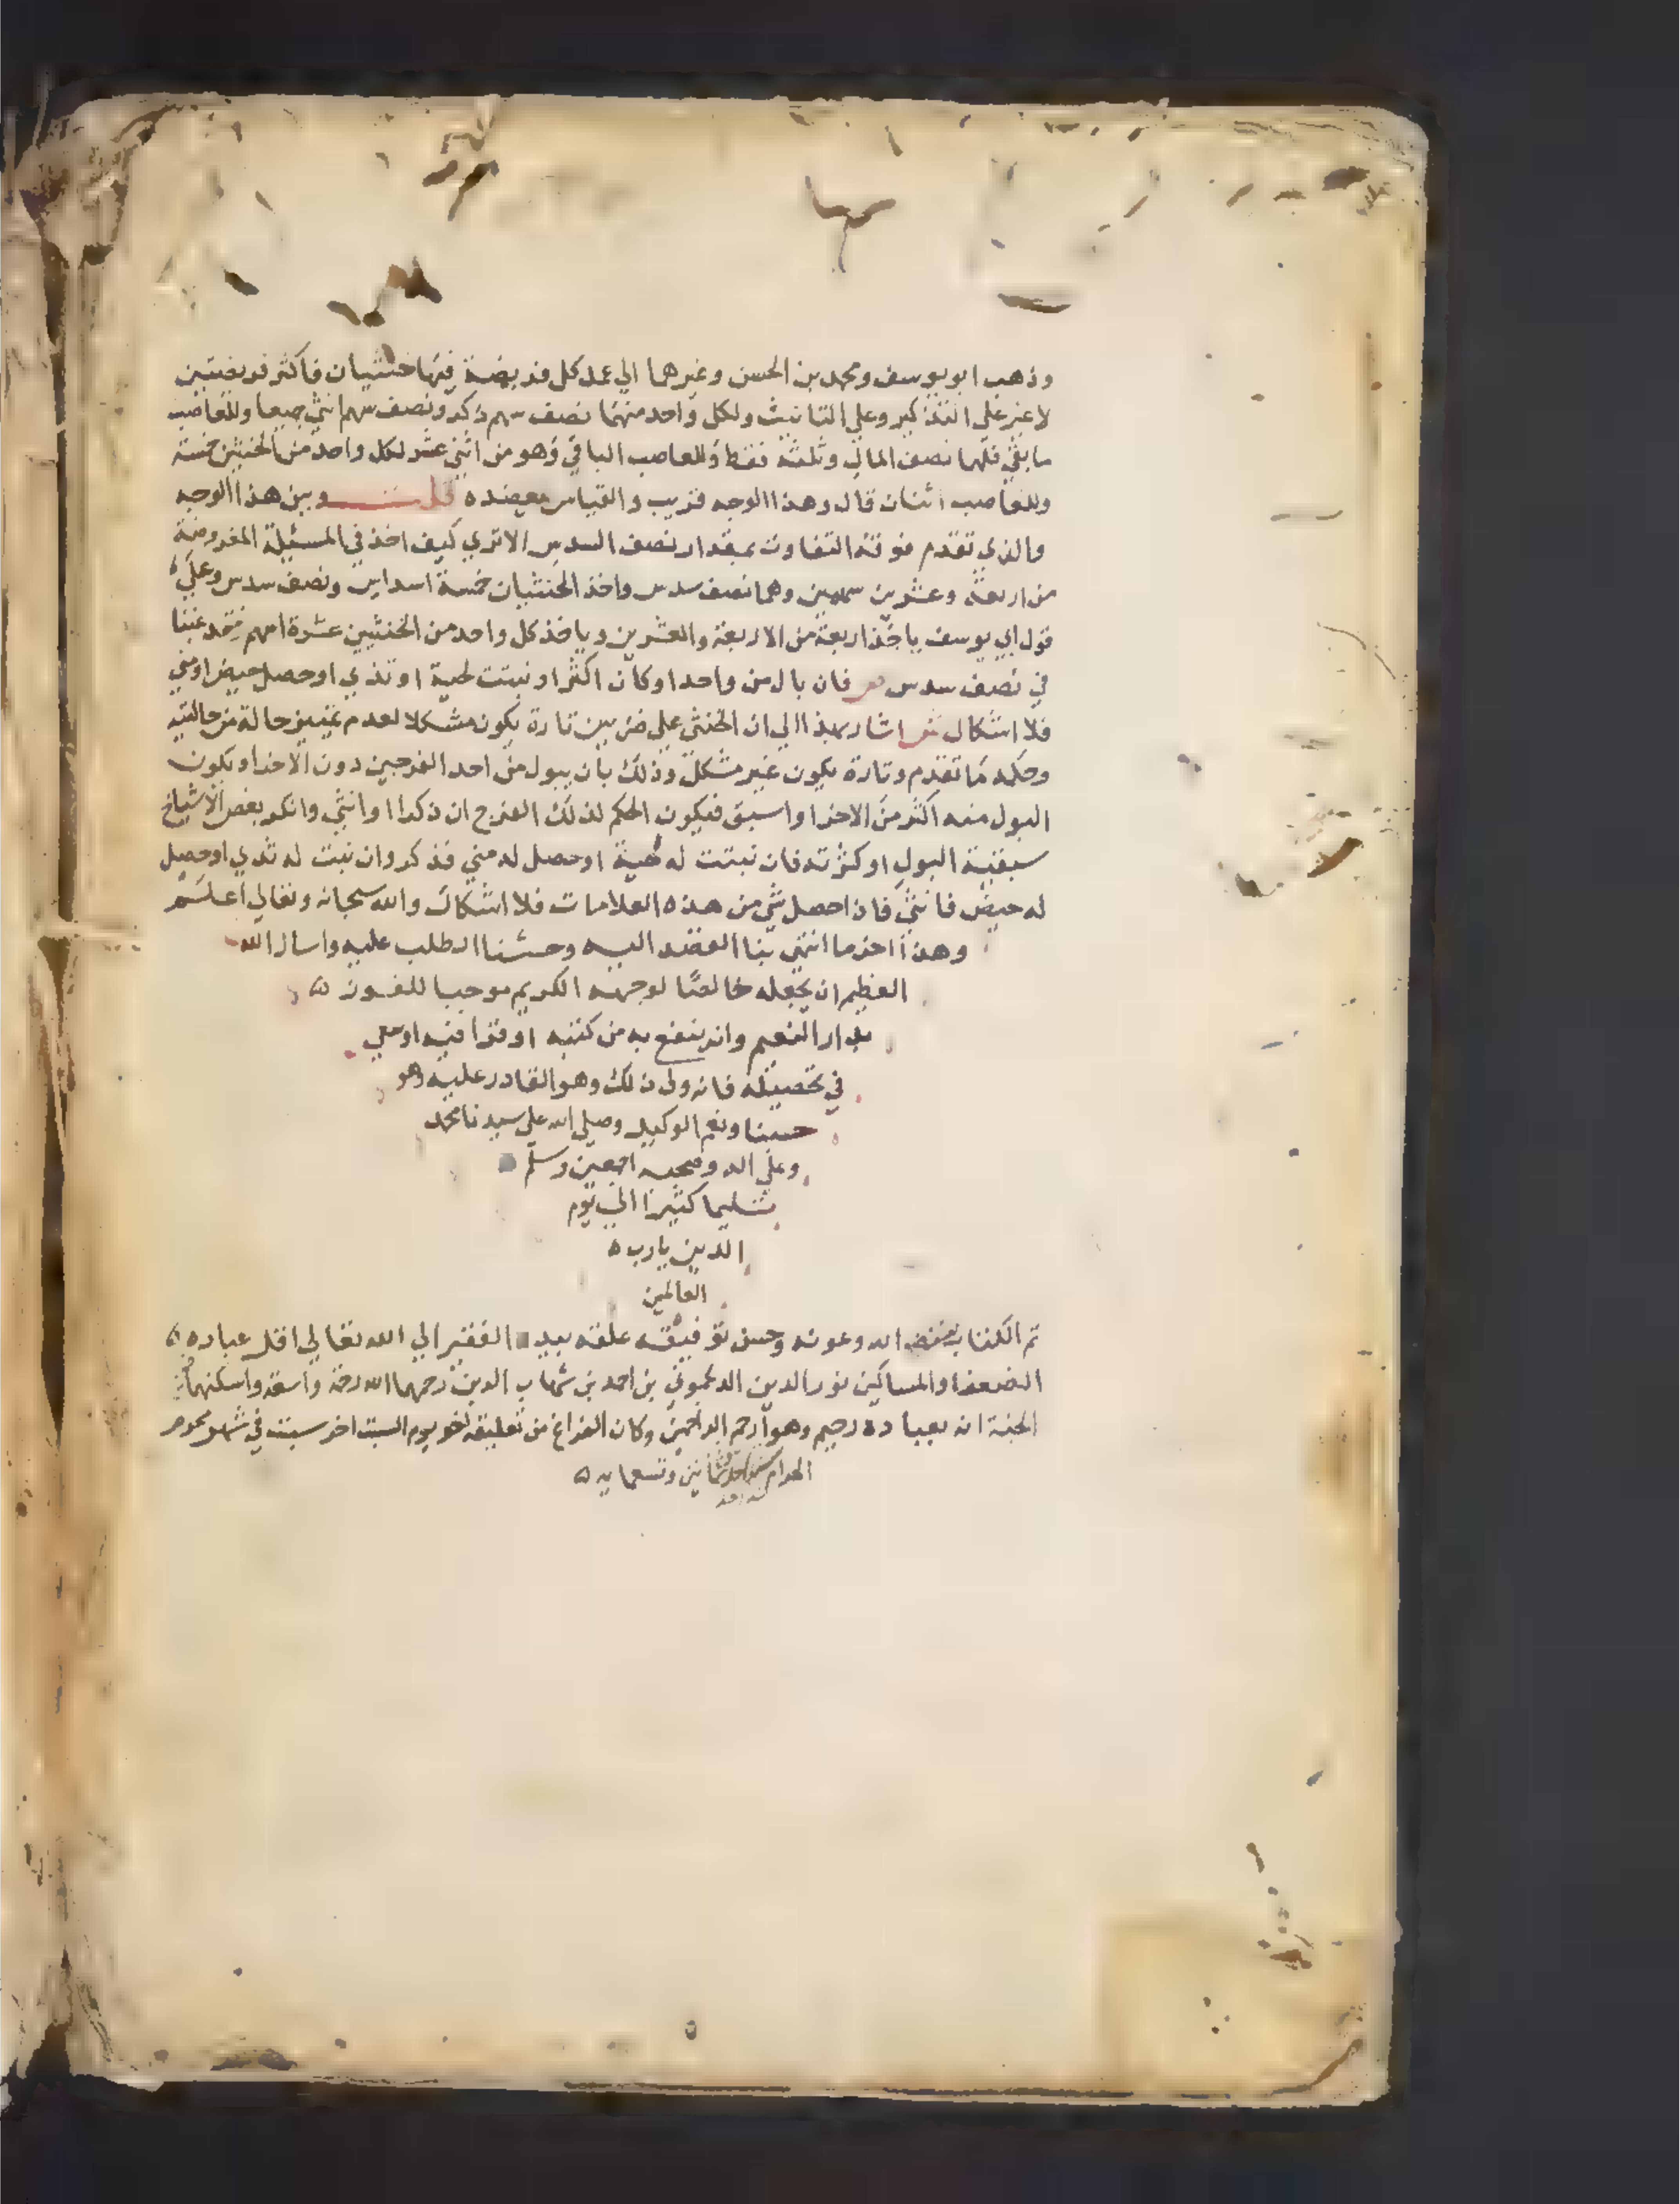 وذهب ابو يوسف ومحمد بن الحسن وغيرهما الي عمل كل فريضة فيها خنثيان فاكثر فريضتين
لا غير علي التذكير وعلي التانيث ولكل واحد منهما نصف سهم ذكر ونصف سهم انثي جميعا وللعاصب
ما بقي فلهما نصف المال وثلثه فقط وللعاصب الباقي وهو من اثني عشر لكل واحد من الخنثيين خمسة
وللعاصب اثنان قال وهذا الوجه قريب والقياس يعضده قلت وبين هذا الوجه
والذي تقدم فوقه التفاوت بمقدار نصف السدس الا تري كيف اخذ في المسئلة المفروضة
من اربعة وعشرين سهمين وهما نصف سدس واخذ الخنثيان خمسة اسداس ونصف سدس وعلي
قول ابي يوسف ياخذ اربعة من الاربعة والعشرين وياخذ كل واحد من الخنثيين عشرة اسهم فقد غبنا
في نصف سدس ص فان بال من واحد او كان اكثر او نبتت لحية او ثدي او حصل حيض او مني
فلا اشكال ش اشار بهذا الي ان الخنثي علي ضربين تارة يكون مشكلا لعدم تمييز حالة من حالتيه
وحكمه ما تقدم وتارة يكون غير مشكل وذلك بان يبول من احد الفرجين دون الاخر او يكون
البول منه اكثر من الاخر او اسبق فيكون الحكم لذلك الفرج ان ذكرا او انثي وانكر بعض الاشياخ
سبقية البول او كثرته فان نبتت له لحية او حصل له مني فذكر وان نبت له ثدي او حصل
له حيض فانثي فاذا حصل شي من هذه العلامات فلا اشكال والله سبحانه وتعالي اعلم
وهذا اخر ما انتهي بنا القصد اليه وحثنا الطلب عليه واسال الله
العظيم ان يجعله خالصا لوجهه الكريم موجبا للفوز
بدار النعيم وان ينفع به من كتبه او قرا فيه او سعي
في تحصيله فانه ولي ذلك وهو القادر عليه وهو
حسبنا ونعم الوكيل وصلي الله علي سيدنا محمد
وعلي اله وصحبه اجمعين وسلم
تسليما كثيرا الي يوم
الدين يا رب
العالمين
تم الكتاب بفضل الله وعونه وحسن توفيقه علقه بيده الفقير الي الله تعالي اقل عباده
الضعفا والمساكين نور الدين بن احمد بن شهاب الدين رحمهما الله رحمة واسعة واسكنهما
الجنة انه بعباده رحيم وهو ارحم الراحمين وكان الفراغ من تعليقه نحو يوم السبت اخر سبت في شهر محرم
الحرام سنة وثمانين وتسعمايه